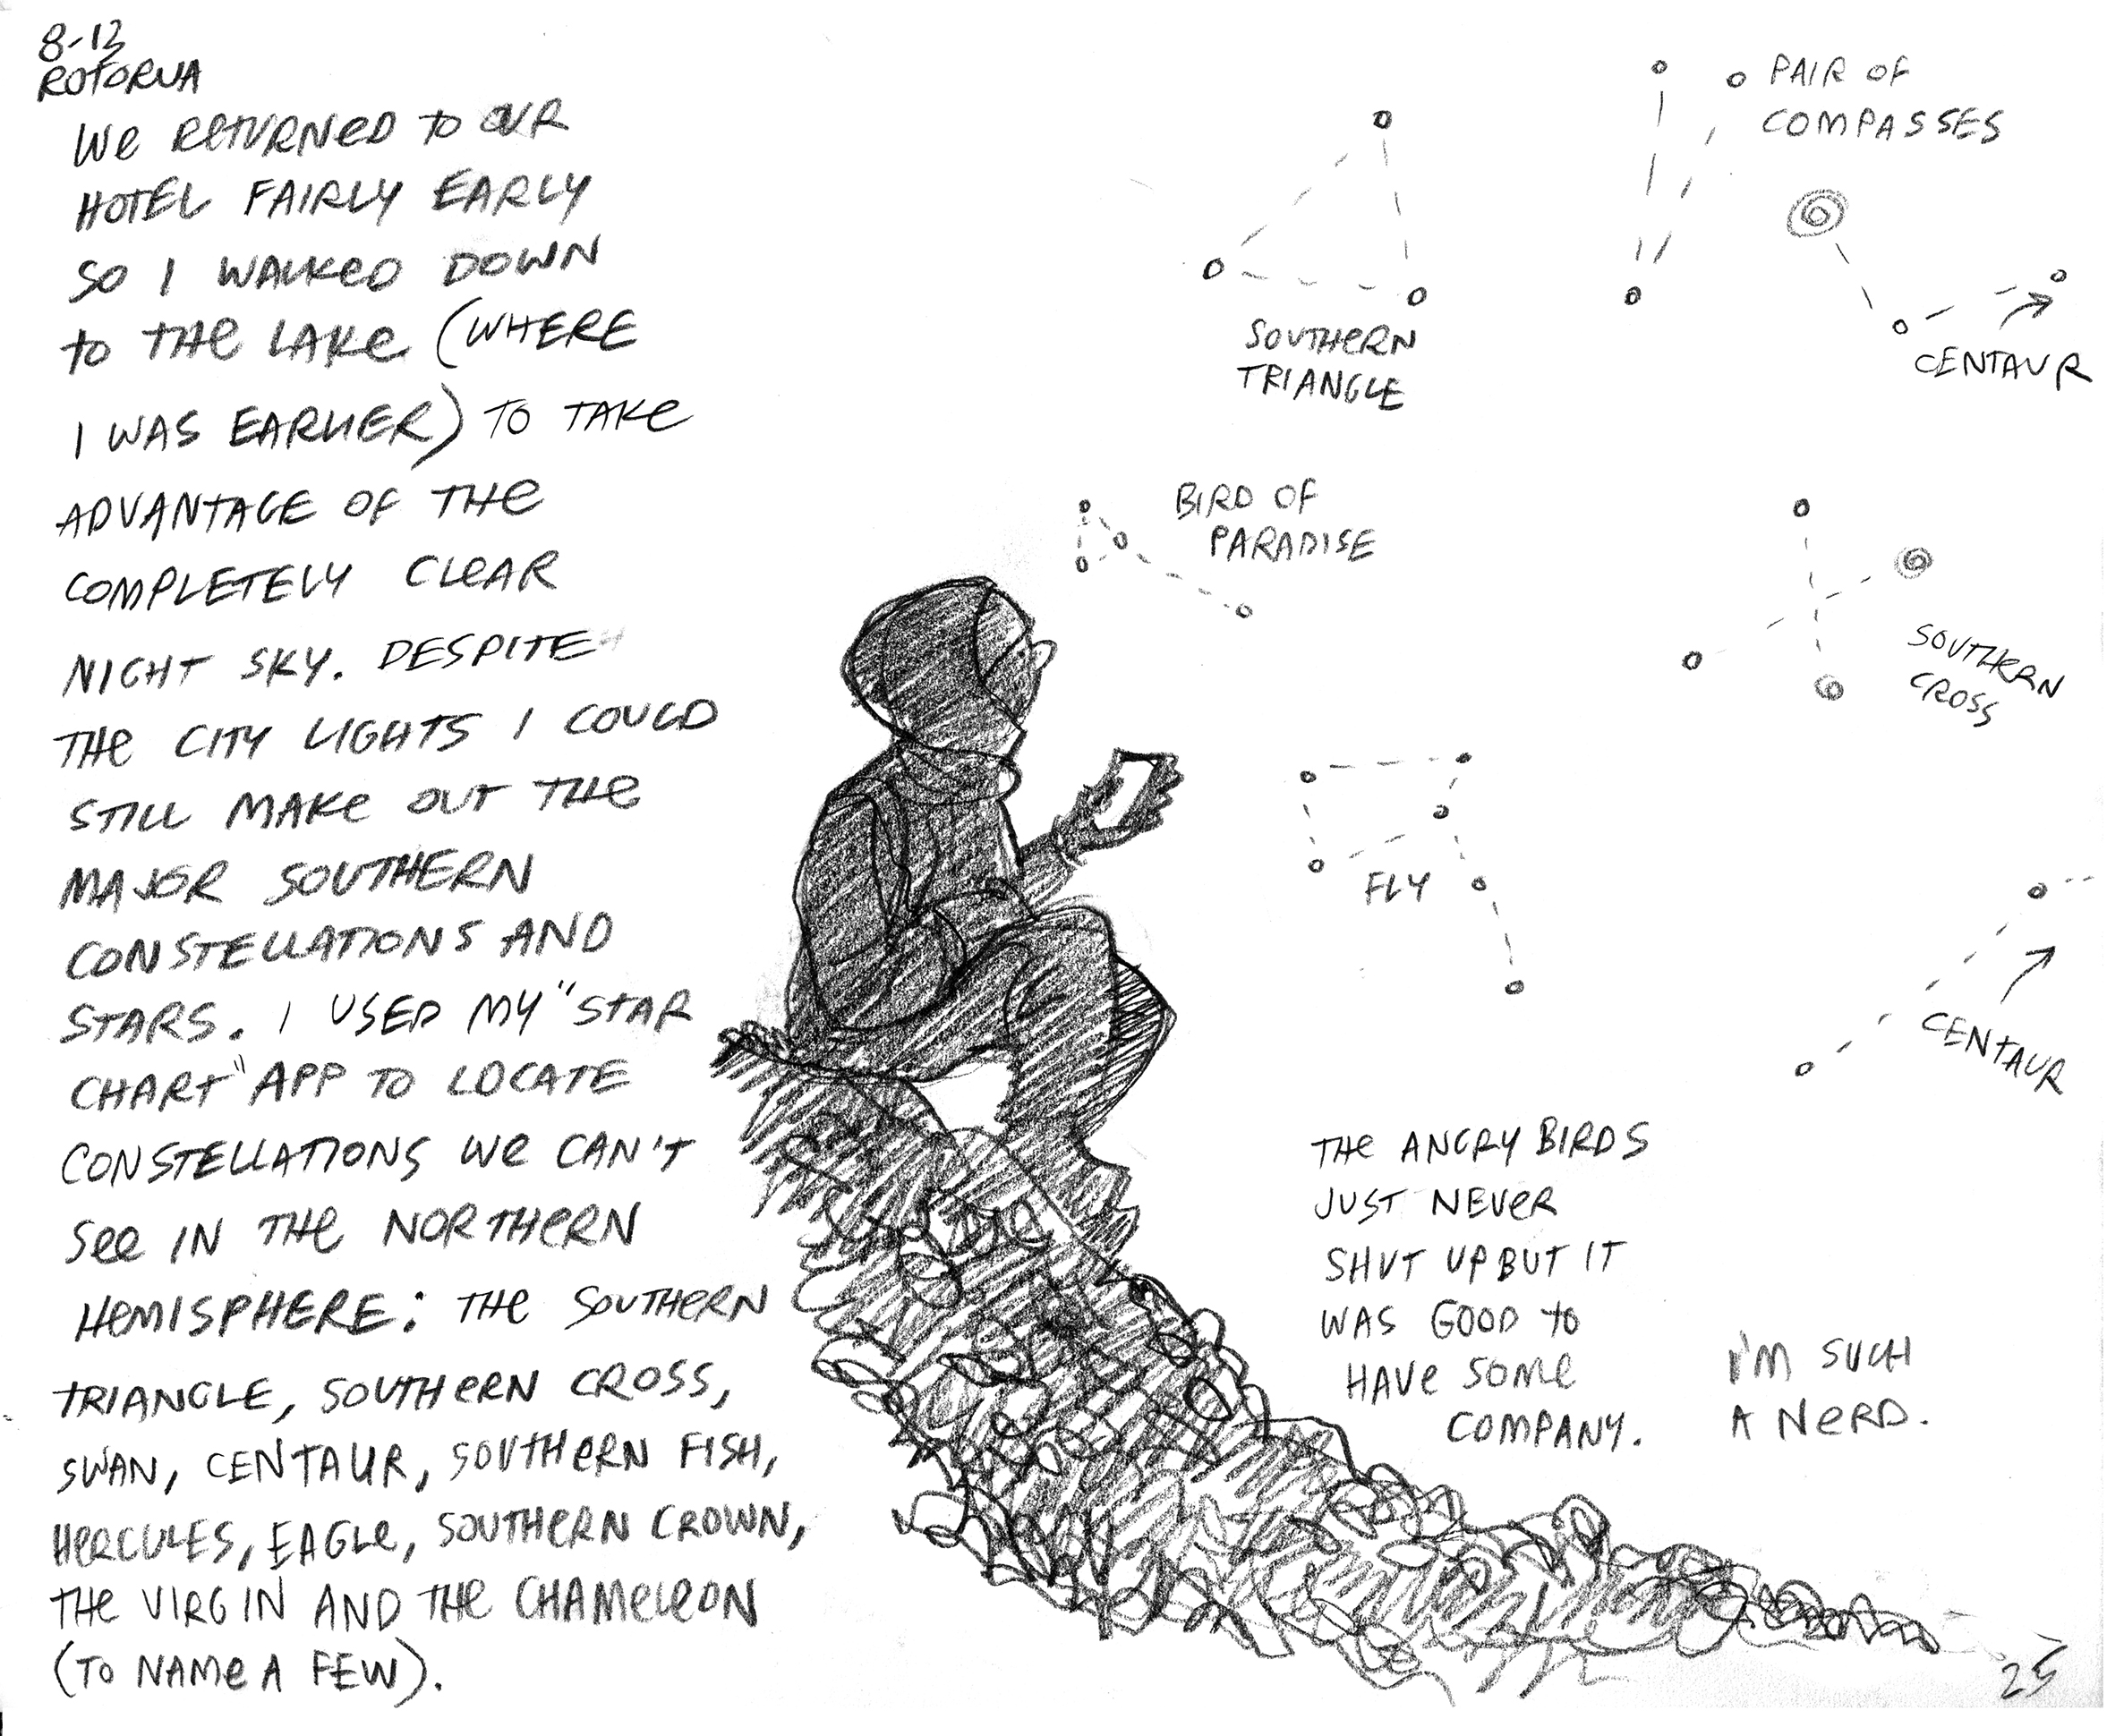 8-13
ROTORUA
WE RETURNED TO OUR
HOTEL FAIRLY EARLY
SO I WALKED DOWN
TO THE LAKE (WHERE
I WAS EARLIER) TO TAKE
ADVANTAGE OF THE
COMPLETELY CLEAR
NIGHT SKY. DESPITE
THE CITY LIGHTS I COULD
STILL MAKE OUT THE
MAJOR SOUTHERN
CONSTELLATIONS AND
STARS. I USED MY "STAR
CHART" APP TO LOCATE
CONSTELLATIONS WE CAN'T
SEE IN THE NORTHERN
HEMISPHERE: THE SOUTHERN
TRIANGLE, SOUTHERN CROSS,
SWAN, CENTAUR, SOUTHERN FISH,
HERCULES, EAGLE, SOUTHERN CROWN,
THE VIRGIN AND THE CHAMELEON
(TO NAME A FEW).
PAIR OF
COMPASSES
SOUTHERN
TRIANGLE
CENTAUR
BIRD OF
PARADISE
SOUTHERN
CROSS
FLY
CENTAUR
THE ANGRY BIRDS
JUST NEVER
SHUT UP BUT IT
WAS GOOD TO
HAVE SOME
COMPANY.
I'M SUCH
A NERD.
25